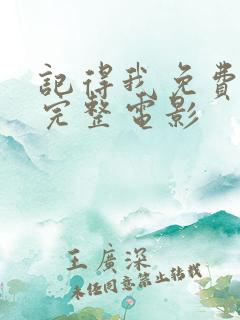 記得我免費
完整電影
王廣深
未经同意禁止转载